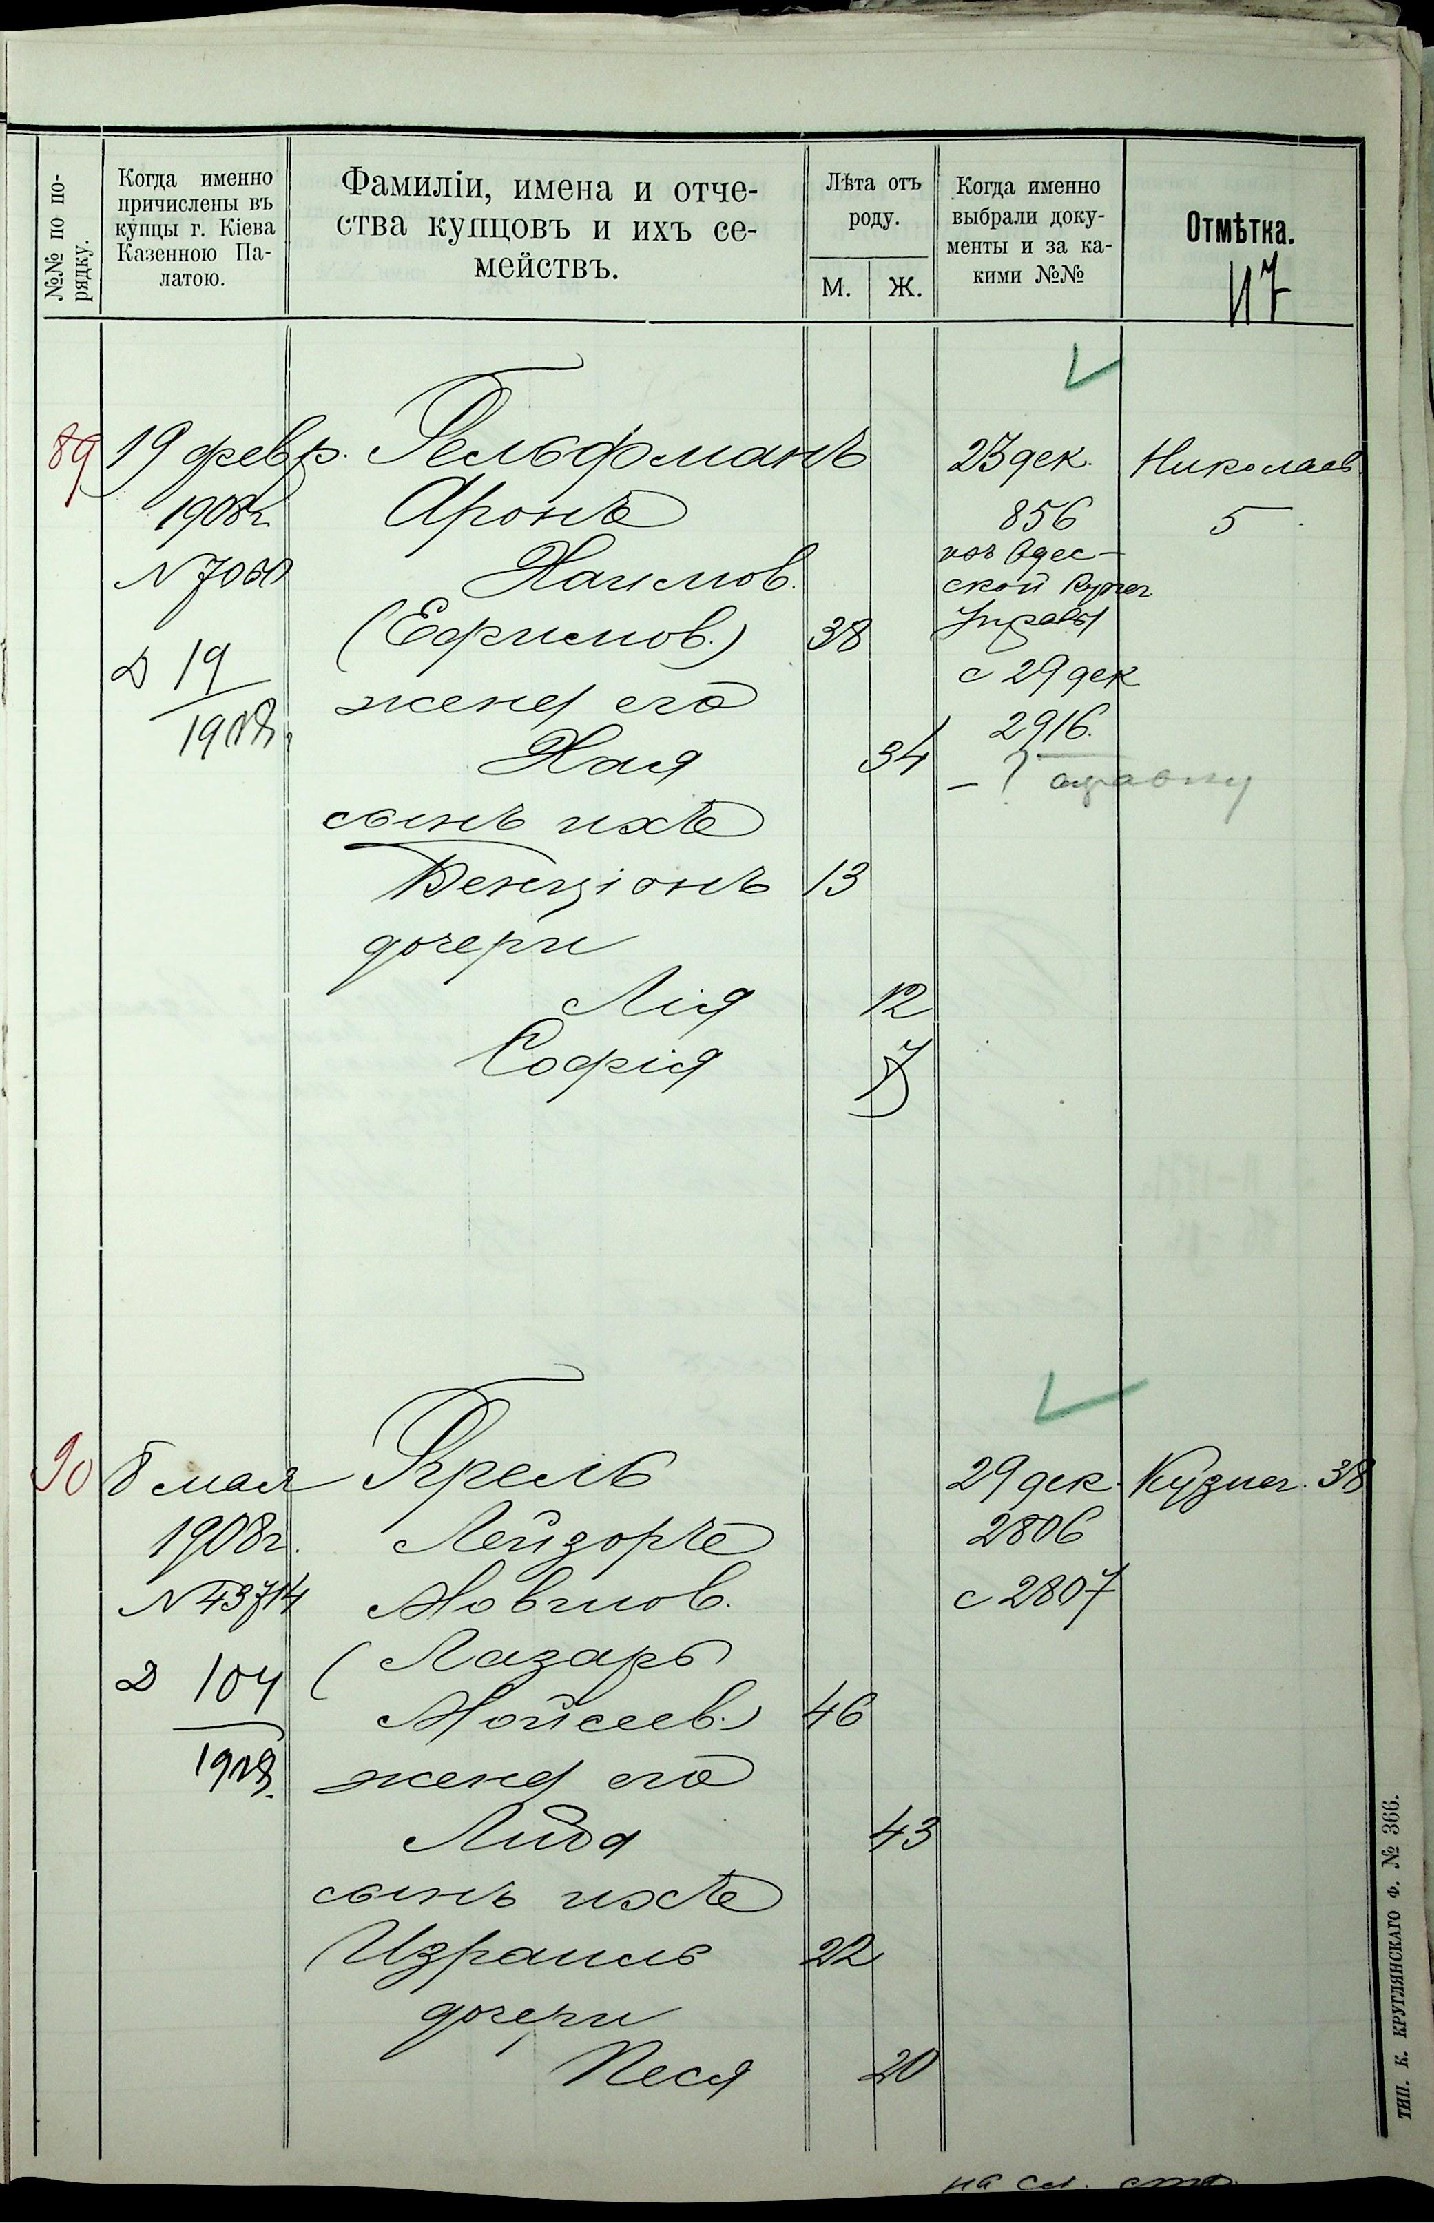 №№ по по-
рядку.
Когда именно
причислены въ
купцы г. Кіева
Казенною Па-
латою.
Фамиліи, имена и отче-
ства купцовъ и ихъ се-
мействъ.
Лѣта отъ
роду.
М.
Ж.
Когда именно
выбрали доку-
менты и за ка-
кими №№
Отмѣтка.
89
19 февр.
1908г
Д 19
Гельфманъ
Аронъ
Хаимов.
(Ефимов.) 38
жена его
Хая 34
сынъ ихъ
Бенціонъ 13
дочери
Лія 12
Софія 7
23 дек.
856
Одес-
ской Купеч
Управы
с 29 дек
2916.
Николаев
5
90
8 мая
1908г.
N 43714
Д 104
Крель
Лейзоръ
Мовшов.
(Лазарь
Мойсеев.) 46
жена его
Люба 43
сынъ ихъ
Израиль 22
дочери
Песя 20
29 дек.
2806
с 2807
Кузнеч. 38
на сл. стр.
ТИП. К. КРУГЛЯНСКАГО Ф. № 366.